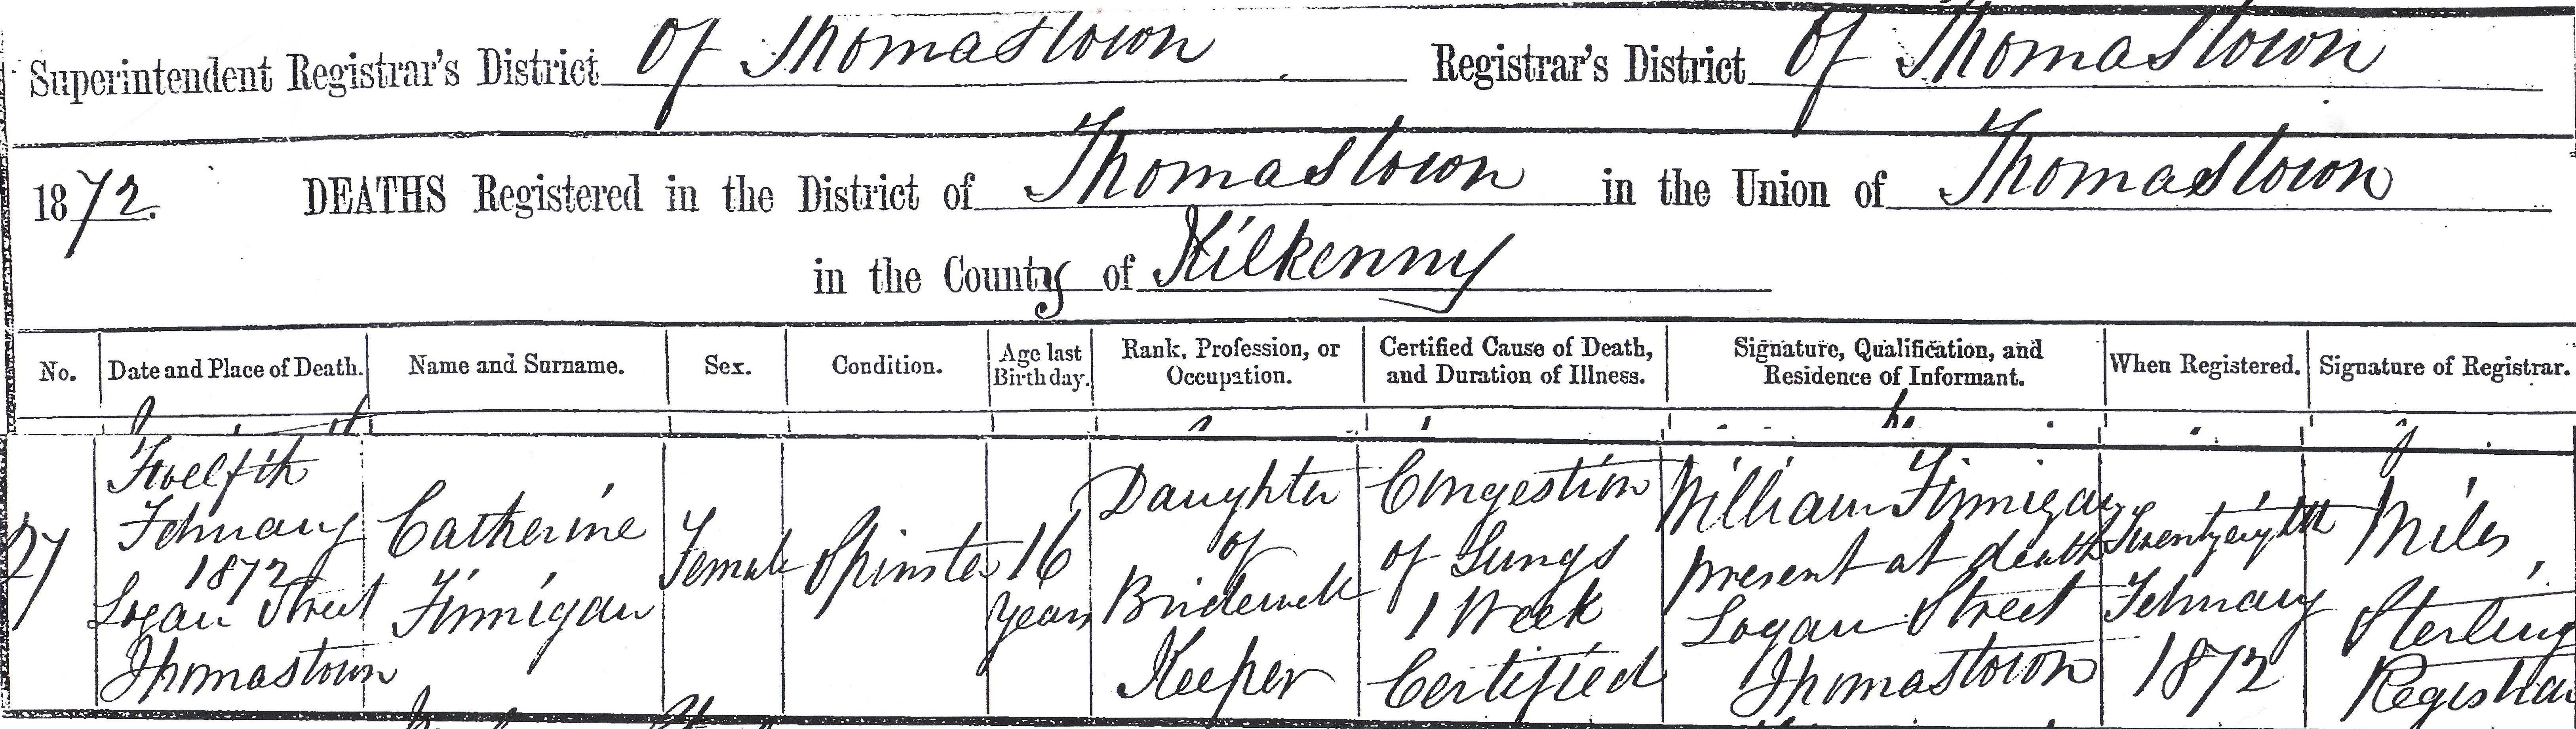 Superintendent Registrar's District Of Thomastown Registrar's District Of Thomastown
1872. DEATHS Registered in the District of Thomastown in the Union of Thomastown
in the County of Kilkenny
No.
Date and Place of Death.
Name and Surname.
Sex.
Condition.
Age last
Birthday.
Rank, Profession, or
Occupation.
Certified Cause of Death,
and Duration of Illness.
Signature, Qualification, and
Residence of Informant.
When Registered.
Signature of Registrar.
27
Twelfth
February
1872
Logan Street
Thomastown
Catherine
Finnigan
Female
Spinster
16
years
Daughter
of
Bridewell
Keeper
Congestion
of Lungs
1 Week
Certified
William Finnigan
present at death
Logan Street
Thomastown
Twentyeighth
February
1872
Miles
Sterling
Registrar